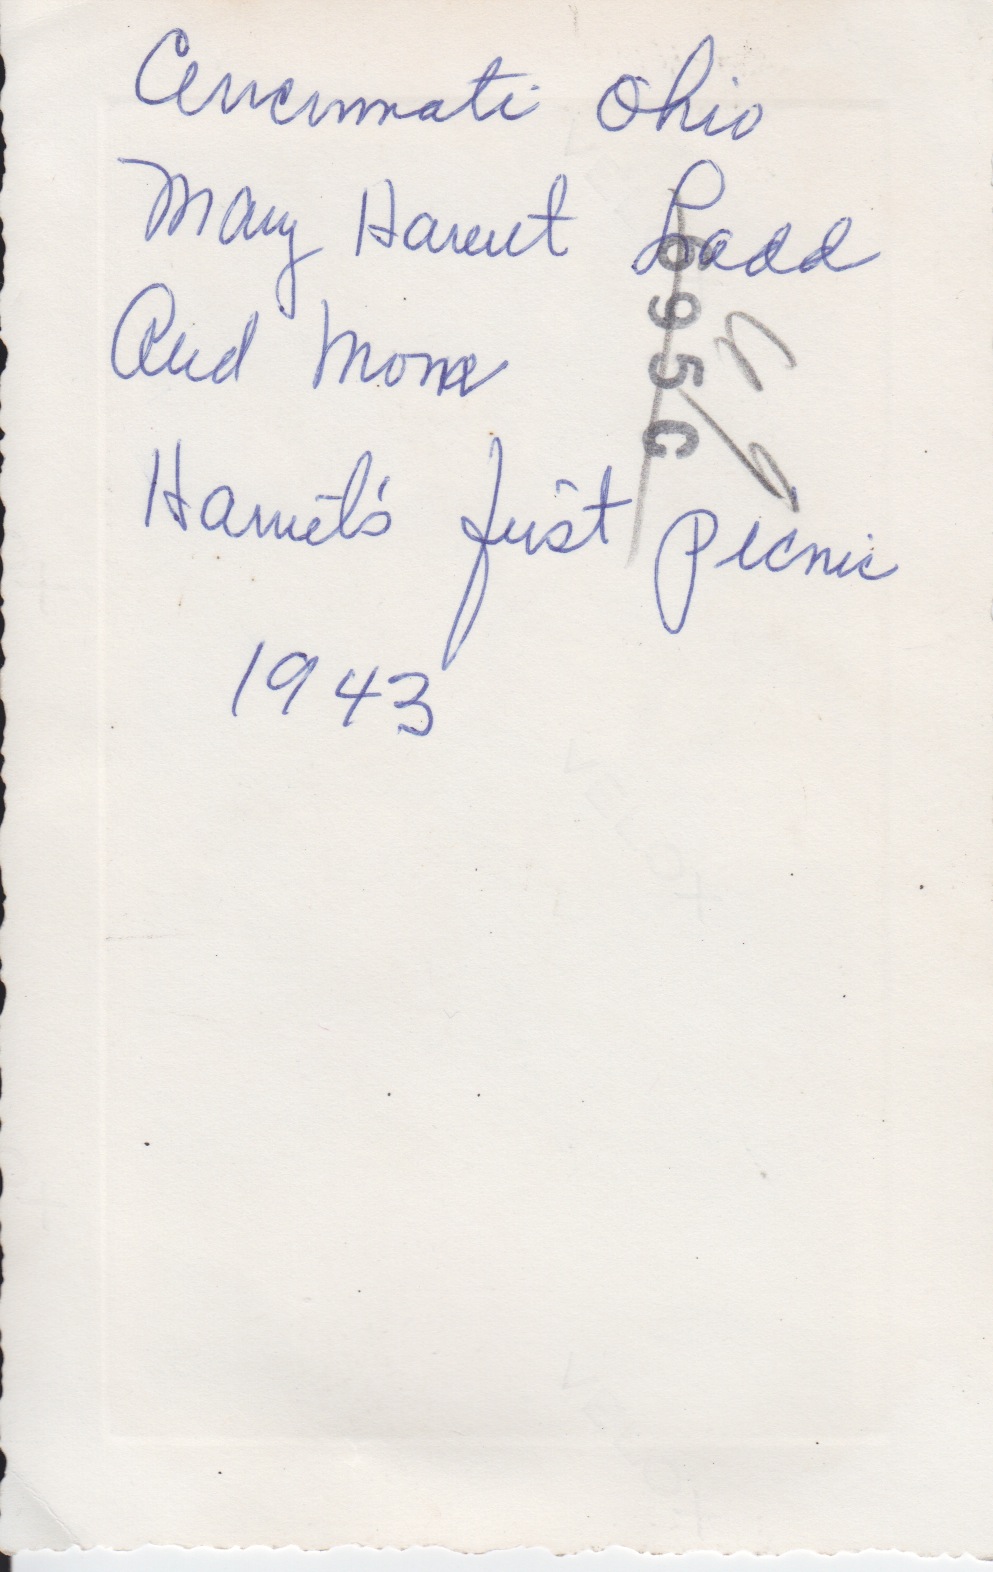 Cincinnati Ohio
Mary Harriet Ladd
And Mom
Harriet's first picnic
1943
695C